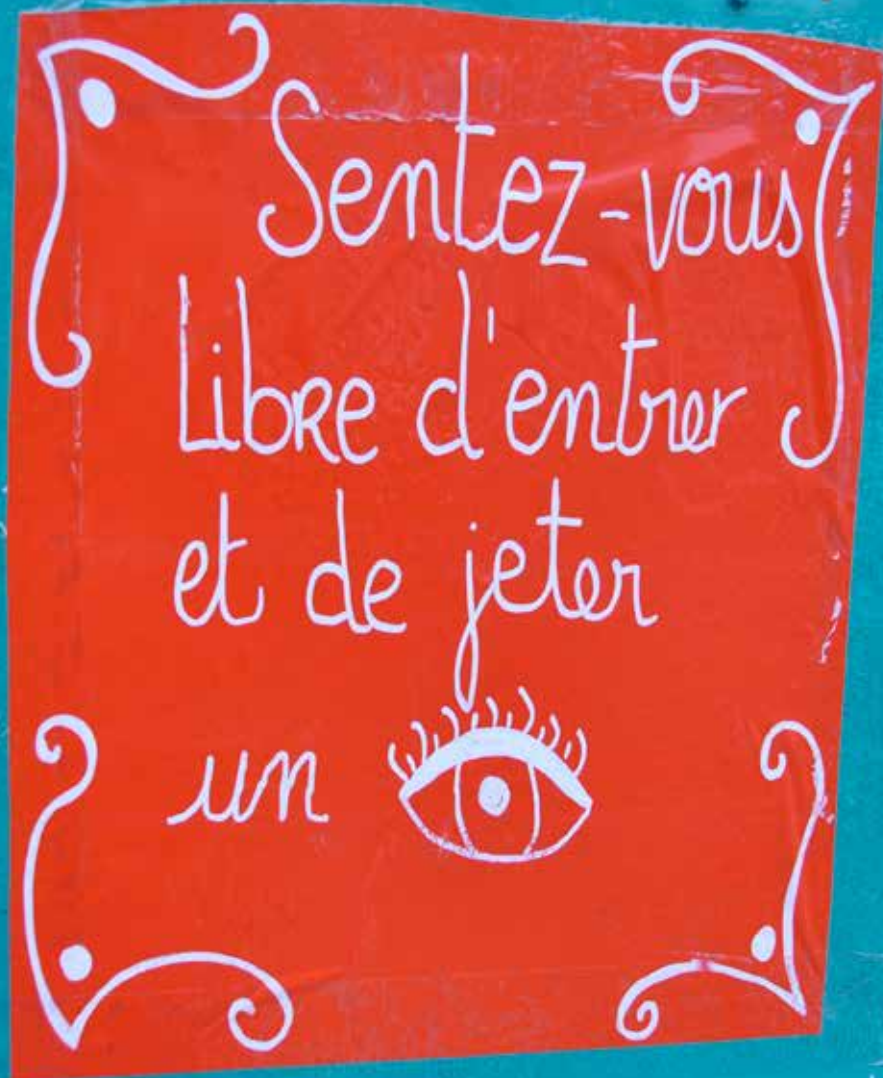 Sentez-vous
Libre d'entrer
et de jeter
un